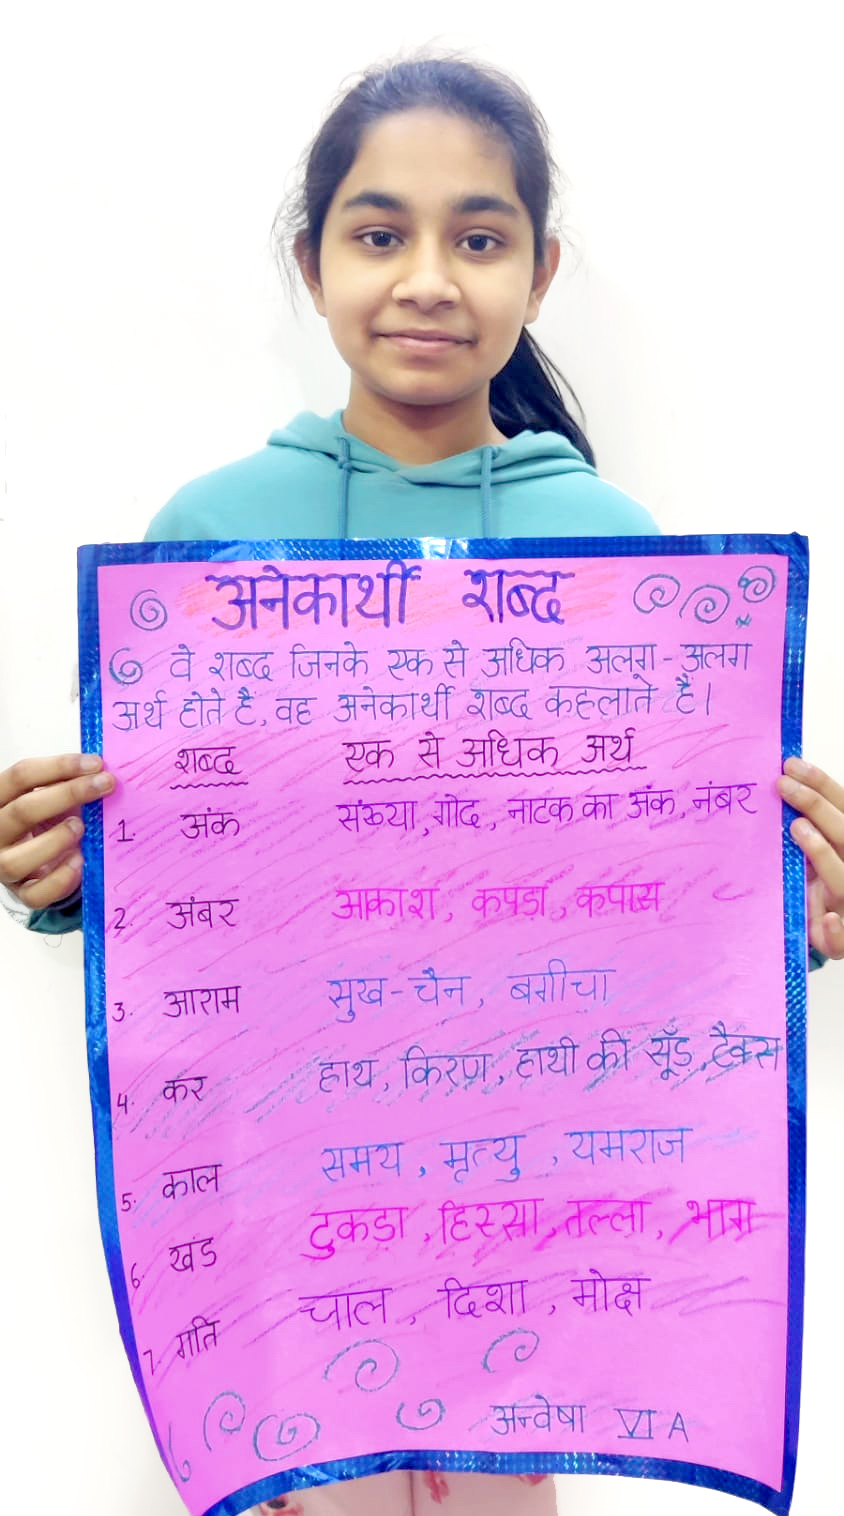 अनेकार्थी शब्द
वे शब्द जिनके एक से अधिक अलग-अलग
अर्थ होते है, वह अनेकार्थी शब्द कहलाते हैं।
शब्द एक से अधिक अर्थ
1. अंक संख्या, गोद, नाटक का अंक, नंबर
2. अंबर आकाश, कपड़ा, कपास
3. आराम सुख-चैन, बगीचा
4. कर हाथ, किरण, हाथी की सूँड, टैक्स
5. काल समय, मृत्यु, यमराज
6. खंड टुकड़ा, हिस्सा, तल्ला, भाग
7. गति चाल, दिशा, मोक्ष
अन्वेषा VI A